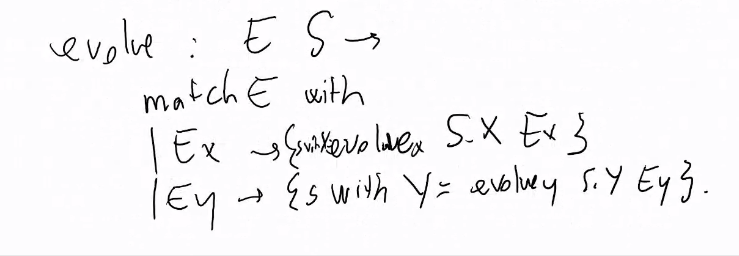 evolve : E S →
match E with
| Ex → {s with X = evolvex S.X Ex}
| Ey → {s with Y = evolvey S.Y Ey}.